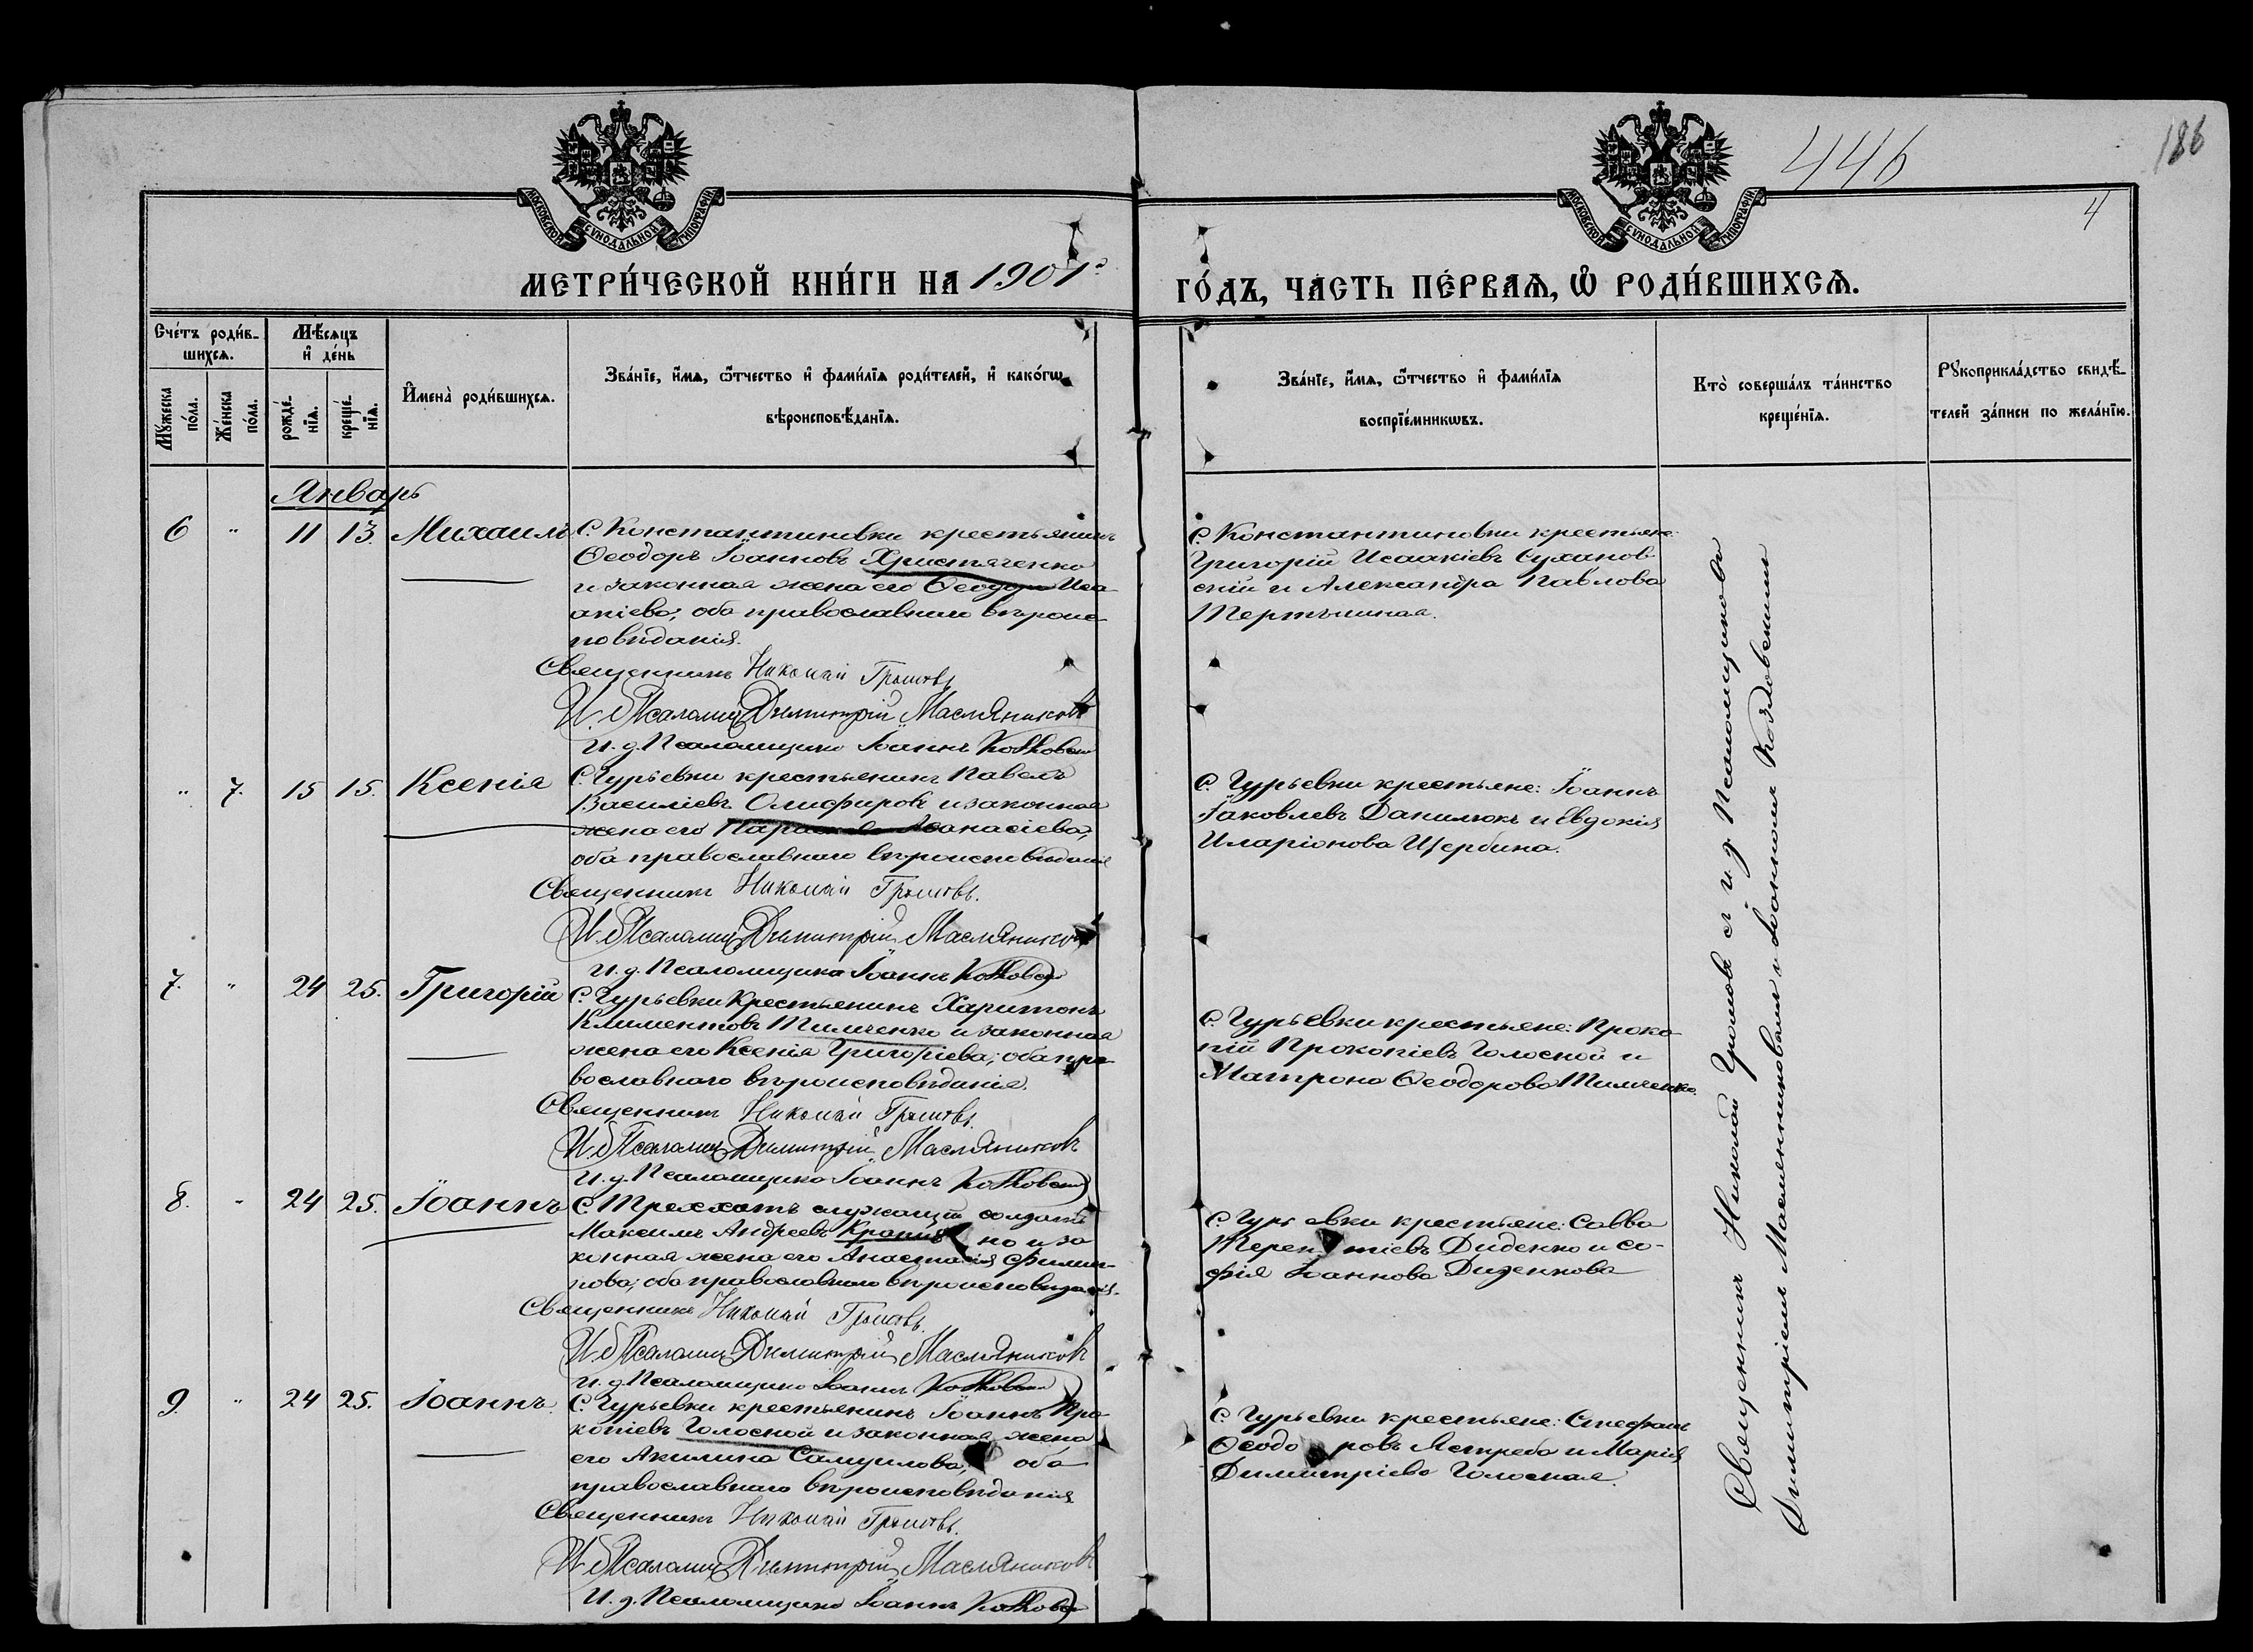 446
186
4
МОСКОВСКОЙ СѴНОДАЛЬНОЙ ТИПОГРАФІИ
МОСКОВСКОЙ СѴНОДАЛЬНОЙ ТИПОГРАФІИ
МЕТРИ́ЧЕСКОЙ КНИ́ГИ НА 1901г
ГО́ДЪ, ЧА́СТЬ ПЕ́РВАѦ, Ѡ РОДИ́ВШИХСѦ.
Сче́тъ роди́в-
шихсѧ.
Мꙋ́жеска
по́ла.
Же́нска
по́ла.
Мѣ́сѧцъ
и҆ де́нь
рожде́-
нїѧ.
креще́-
нїѧ.
И҆мена̀ роди́вшихсѧ.
Зва́нїе, и҆́мѧ, ѻ҆́тчество и҆ фами́лїѧ роди́телей, и҆ како́гѡ
вѣроисповѣ́данїѧ.
Зва́нїе, и҆́мѧ, ѻ҆́тчество и҆ фами́лїѧ
воспрїе́мникѡвъ.
Кто̀ соверша́лъ та́инство
креще́нїѧ.
Рꙋкоприкла́дство свидѣ́-
телей за́писи по жела́нїю.
Январь
6 " 11 13. Михаилъ
С. Константиновки крестьянинъ
Ѳеодоръ Іоанновъ Христяченко
и законная жена его Иса-
акіева; оба православнаго вѣроис-
повѣданія.
Священникъ Николай Громовъ
И. д. Псаломщ Димитрій Масляниковъ
И. д. Псаломщика Іоаннъ
С. Константиновки крестьяне:
Григорій Исаакіевъ Суханов-
скій и Александра Павлова
Тертышная.
" 7. 15 15. Ксенія
С. Гурьевки крестьянинъ Павелъ
Василіевъ Олифировъ и законная
жена его Аѳанасіева,
оба православнаго вѣроисповѣданія
Священникъ Николай Громовъ.
И. д. Псаломщ Димитрій Масляниковъ
И. д. Псаломщика Іоаннъ
С. Гурьевки крестьяне: Іоаннъ
Іаковлевъ Данилюкъ и Евдокія
Иларіонова Щербина.
7. " 24 25. Григорій
С. Гурьевки Крестьянинъ Харитонъ
Климентовъ Тимченко и законная
жена его Ксенія Григоріева; оба пра-
вославнаго вѣроисповѣданія.
Священникъ Николай Громовъ.
И. д. Псаломщ Димитрій Масляниковъ
И. д. Псаломщика Іоаннъ
С. Гурьевки крестьяне: Проко-
пій Прокопіевъ Голосной и
Матрона Ѳеодорова Тимченко.
8. " 24 25. Іоаннъ
С. Трехъхатъ служащій солдатъ
Максимъ Андреевъ и за
конная жена его Анастасія Филип-
пова; оба православнаго вѣроисповѣданія.
Священникъ Николай Громовъ.
И. д. Псаломщ Димитрій Масляниковъ
И. д. Псаломщика Іоаннъ
С. Гурьевки крестьяне: Савва
Терентіевъ Диденко и Со-
фія Іоаннова Диденкова
9. " 24 25. Іоаннъ.
С. Гурьевки крестьянинъ Іоаннъ Про-
копіевъ Голосной и законная жена
его Акилина Самуилова, оба
православнаго вѣроисповѣданія
Священникъ Николай Громовъ.
И. д. Псаломщ Димитрій Масляниковъ
И. д. Псаломщика Іоаннъ
С. Гурьевки крестьяне: Стефанъ
Ѳеодоровъ Ястреба и Марія
Димитріева Голосная.
Священникъ Николай Громовъ съ и. д. Псаломщиковъ
Димитріемъ Масленниковымъ и Іоанномъ Козловскимъ